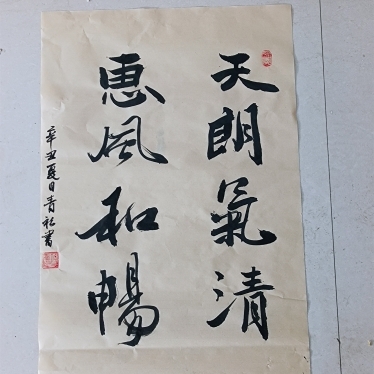 天朗氣清
惠風和暢
辛丑夏日青松書